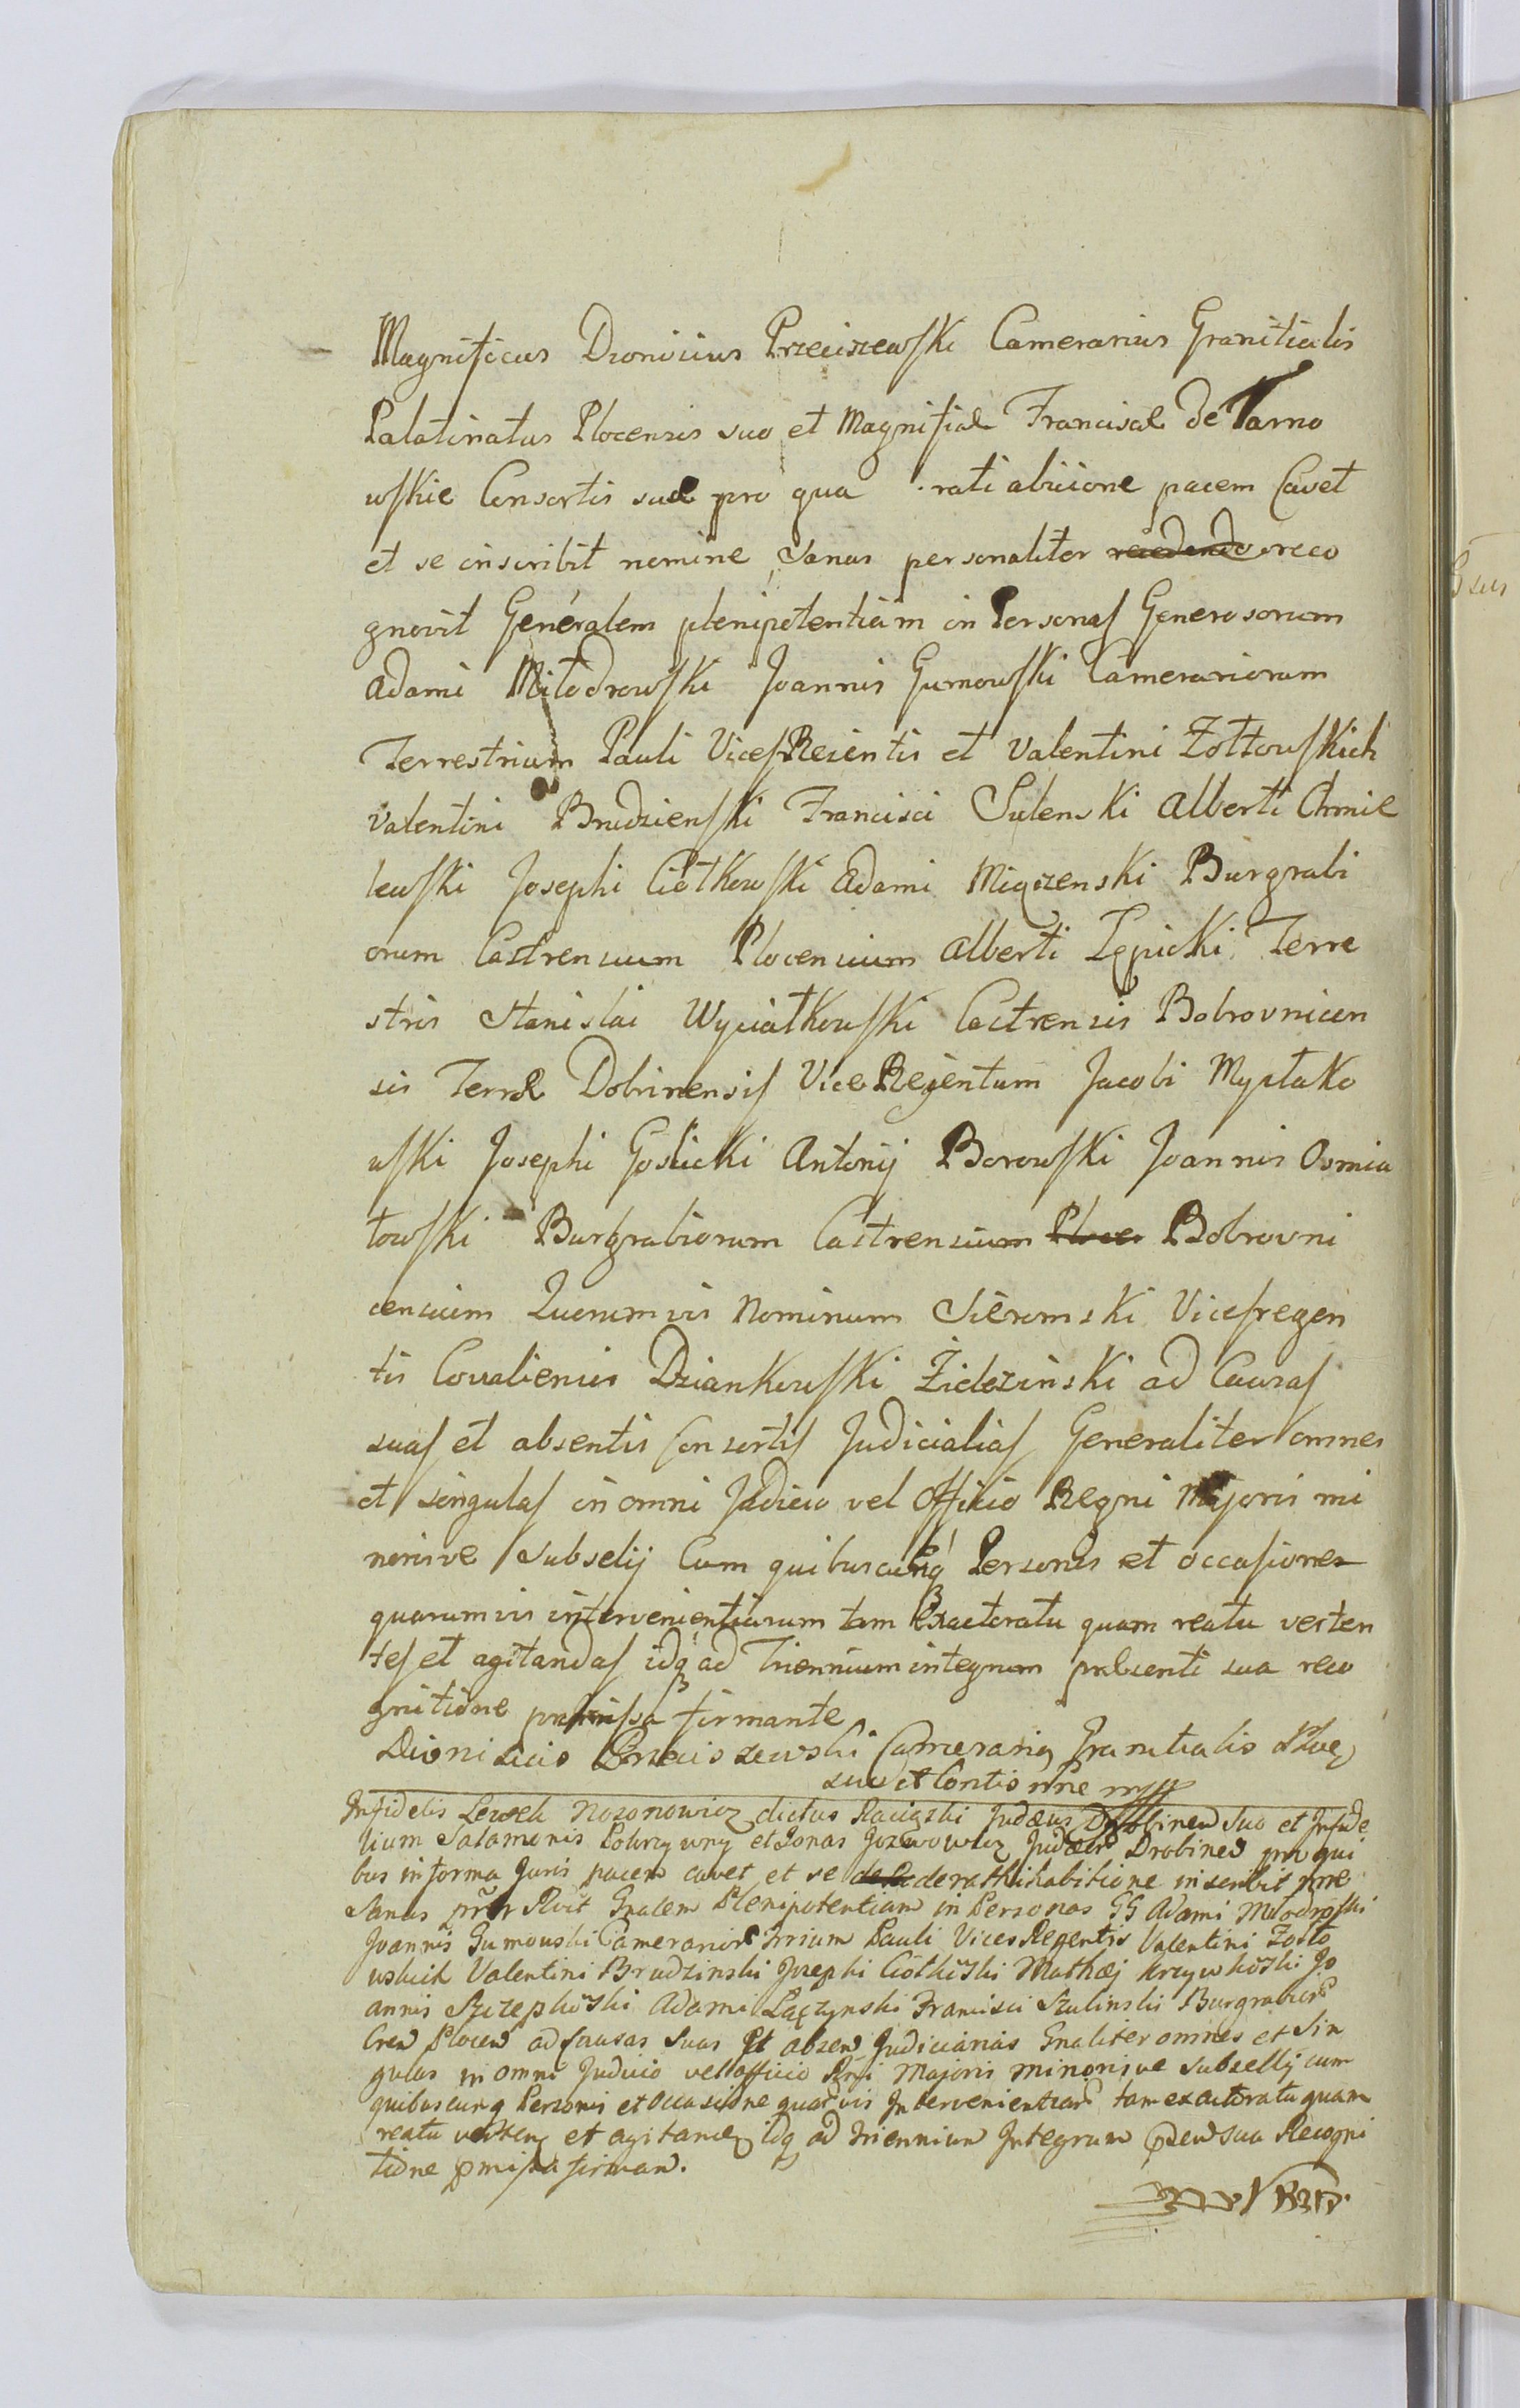 Magnificus Dionisius Przeciszewski Camerarius Granitialis
Palatinatus Plocensis suo et Magnificæ Franciscæ de Tarno
wskie Consortis suæ pro qua rati abicione pacem Cavet
et se inscribit nomine Sanus personaliter reco
gnovit Generalem plenipotentiam in Personas Generosorum
Adami Miłodrowski Joannis Gumowski Camerariorum
Terrestrium Pauli VicesRegentis et Valentini Zołtowskich
Valentini Brudzienski Francisci Sulenski Alberti Chmie
lewski Josephi Ciołkowski Adami Miączenski Burgrabi
orum Castrensium Plocensium Alberti Lępicki Terre
stris Stanislai Wyciałkowski Castrensis Bobrovnicen
sis Terræ Dobrinensis ViceRegentum Jacobi Myrtako
wski Josephi Goslicki Antonij Borowski Joannis Osmia
łowski Burgrabiorum Castrensium Bobrovni
censium Quorumvis Nominum Sieromski Vicesregen
tis Covaliensis Dziankowski Żidezinski ad Causas
suas et absentis Consortis Judicialias Generaliter omnes
et singulas in omni Judicio vel Officio Regni Majoris mi
norisve Subselij Cum quibuscunq Personis et occasiones
quarumvis intervenientiarum tam Exactoratu quam reatu verten
tes et agitandas idq ad Triennium integrum præsenti sua reco
gnitione præmissa firmante
Dionisius Przeciszewski Camerariq Granitialis Ploc
suo et Contis nne mpp
Infidelis Lewek Nosonowicz dictus Raciąski Judæus Drobinen Suo et Infide
lium Salamonis Pokrzywny et Jonas Jozwowicz Judæor Drobinen pro qui
bus in forma Juris pacem cavet et se de rathihabitione inscribit nne
Sanus prlr Rvit Gnalem Plenipotentiam in Personas GG Adami Młodroski
Joannis Gumouski Camerarior Trrium Pauli Vices Regentis Valentini Zołto
wskich Valentini Brudzinski Jozephi Ciołkoski Mathæj Krzywkoski Jo
annis Szczepkoski Adami Łączynski Francisci Szulinski Burgrabior
Cren Plocen ad Causas Suas et absen Judiciarias Gnaliter omnes et Sin
gulas in omni Judicio vel officio Rni Majoris Minorisve Subsellij cum
quibuscunq Personis et occasione quarvis Intervenientiar tam exactoratu quam
reatu verten et agitan idq ad Triennium Integrum pden sua Recogni
tione pmissa firman.